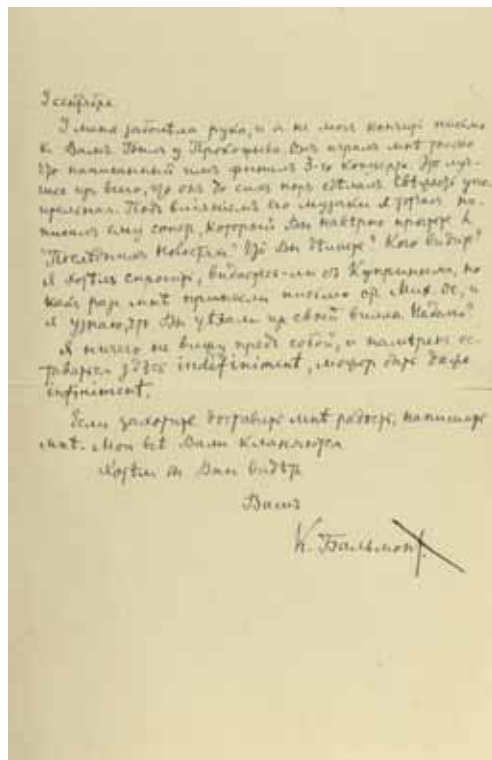 9 сентября
У меня заболѣла рука, и я не могъ кончить письмо
къ Вамъ. Былъ у Прокофьева. Онъ игралъ мнѣ только
что написанный имъ финалъ 3-го концерта. Это луч-
шее изъ всего, что онъ до сихъ поръ сдѣлалъ.
Подъ вліяніемъ его музыки я тотчасъ на-
писалъ ему сонетъ, который Вы навѣрно прочтете въ
"Послѣднихъ Новостяхъ". Что Вы дѣлаете? Кого видите?
Я хотѣлъ спросить, видаетесь-ли съ Купринымъ, но
какъ разъ мнѣ принесли письмо отъ Мих. Ос., и
я узнаю, что Вы уѣхали изъ своей виллы. Надолго?
Я ничего не вижу предъ собой, и намѣренъ ос-
таваться здѣсь indéfiniment, можетъ быть даже
infiniment.
Если захотите доставить мнѣ радость, напишите
мнѣ. Мои всѣ Вамъ кланяются.
Хотѣлъ бы Васъ видѣть
Вашъ
К. Бальмонтъ.